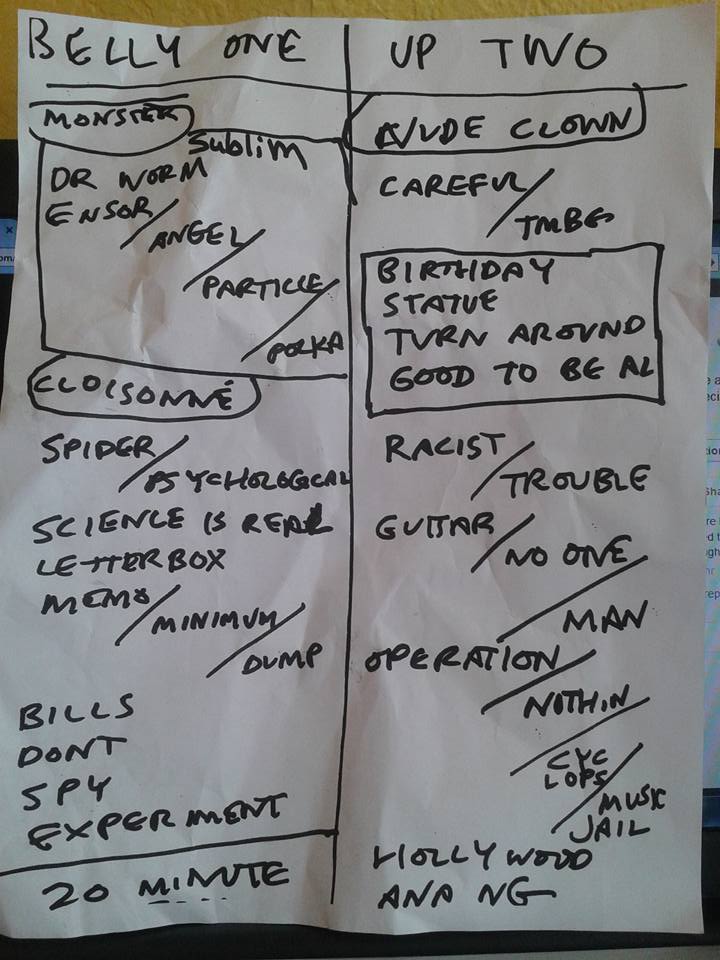 BELLY ONE
MONSTER
Sublim
DR WORM
ENSOR/
ANGEL/
PARTICLE/
POLKA
CLOISONNÉ
SPIDER/
PSYCHOLOGICAL
SCIENCE IS REAL
LETTERBOX
MEMO/
MINIMUM/
DUMP
BILLS
DONT
SPY
EXPERIMENT
20 MINUTE
UP TWO
NUDE CLOWN
CAREFUL/
TMBG
BIRTHDAY
STATUE
TURN AROUND
GOOD TO BE AL
RACIST/
TROUBLE
GUITAR/
NO ONE/
MAN
OPERATION/
NOTHIN/
CYC
LOPS/
MUSIC
JAIL
HOLLYWOOD
ANA NG